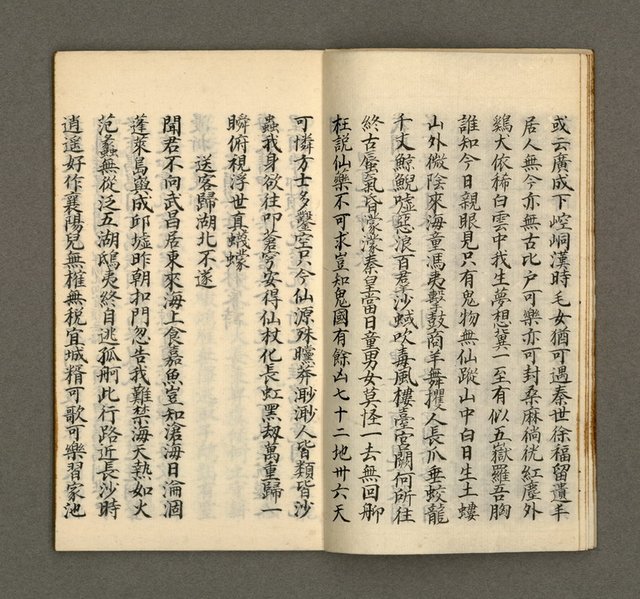 或云廣成下崆峒漢時毛女猶可遇秦世徐福留遺羊
居人無今亦無古比户可樂亦可封桑麻徜徉紅塵外
鷄犬依稀白雲中我生夢想冀一至有似五嶽羅吾胸
誰知今日親眼見只有鬼物無仙蹤山中白日生土螻
山外微陰來海童馮夷擊鼓商羊舞攫人長爪垂蛟龍
千丈鯨鯢噴惡浪百年沙蜮吹毒風樓臺宮闕何所往
終古蜃氣昏濛濛秦皇當日童男女莫怪一去無回舠
枉説仙樂不可求豈知鬼國有餘凶七十二地卅六天
可憐方士多鑿空只今仙源殊曠莽渺渺人皆類皆沙
蟲我身欲往叩蒼穹安得仙杖化長虹黑刼萬重歸一
瞬俯視浮世真蠛蠓
送客歸湖北不遂
聞君不向武昌居東來海上食嘉魚豈知滄海日淪涸
蓬萊島嶼成邱墟昨朝扣門忽告我難禁海天熱如火
范蠡無從泛五湖鴟夷終自逃孤舸此行路近長沙時
逍遥好作襄陽兒無榷無税宜城糈可歌可樂習家池